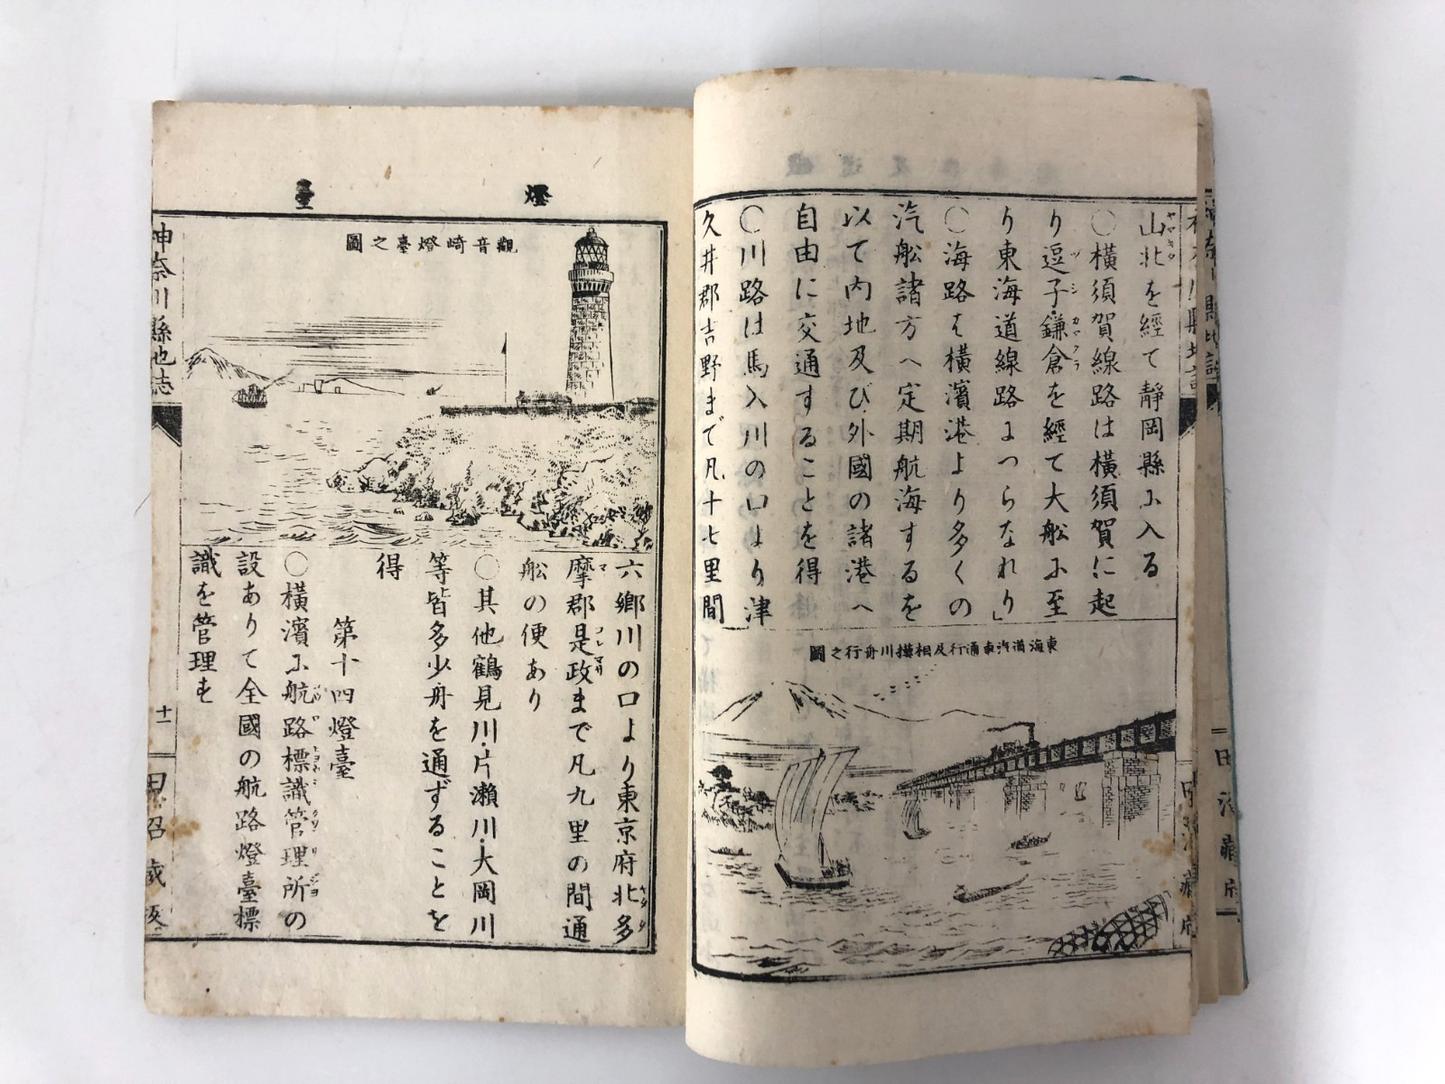 山北を經て靜岡縣に入る
〇橫須賀線路は橫須賀に起
り逗子鎌倉を經て大船に至
り東海道線路につらなれり
〇海路は橫濱港より多くの
汽船諸方へ定期航海するを
以て内地及び外國の諸港へ
自由に交通することを得
〇川路は馬入川の口より津
久井郡吉野まで凡十七里間
東海道汽車通行及相摸川舟行之圖
燈臺
觀音崎燈臺之圖
六鄉川の口より東京府北多
摩郡是政まで凡九里の間通
船の便あり
〇其他鶴見川・片瀨川・大岡川
等皆多少舟を通ずることを
得
第十四燈臺
〇橫濱に航路標識管理所の
設ありて全國の航路燈臺標
識を管理す
神奈川縣地誌
十一
田沼藏版